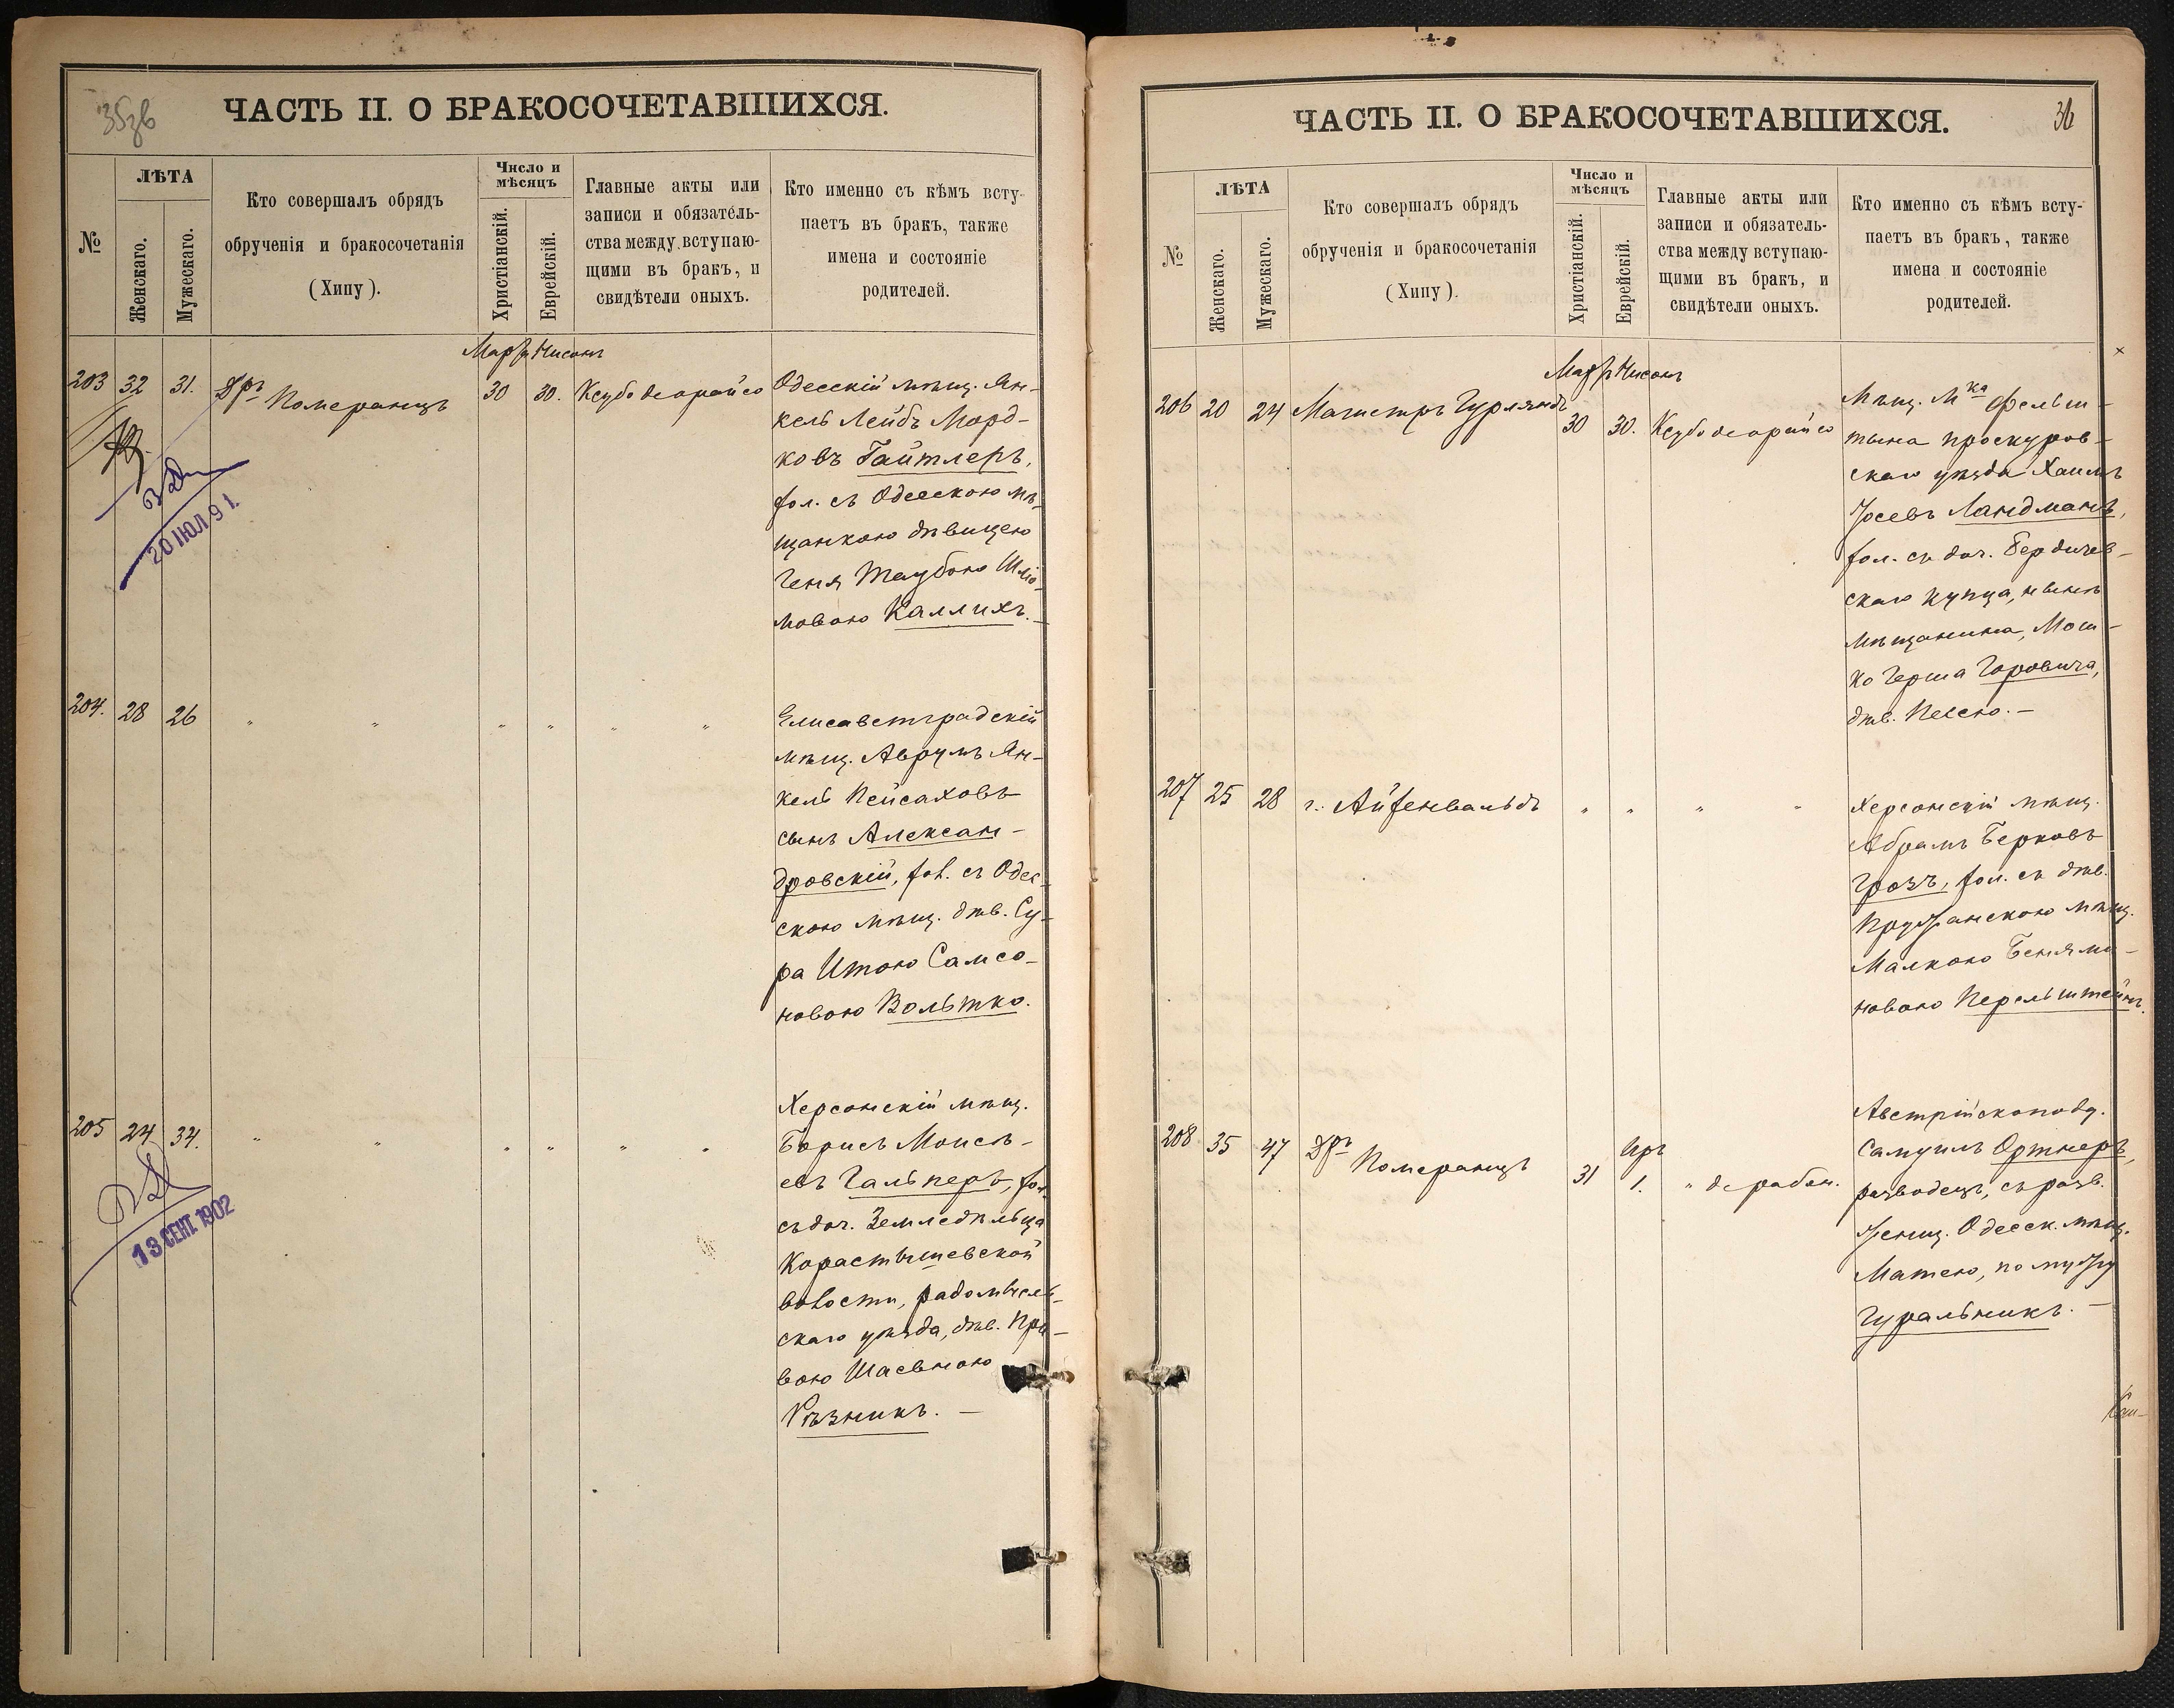 35об
ЧАСТЬ II. О БРАКОСОЧЕТАВШИХСЯ.
№
ЛѢТА
Женскаго.
Мужескаго.
Кто совершалъ обрядъ
обрученія и бракосочетанія
(Хипу).
Число и
мѣсяцъ
Христіанскій.
Еврейскій.
Главные акты или
записи и обязатель-
ства между вступаю-
щими въ бракъ, и
свидѣтели оныхъ.
Кто именно съ кѣмъ всту-
паетъ въ бракъ, также
имена и состояніе
родителей.
Мартъ Нисонъ
203 32 31. Дръ Померанцъ 30 30. Ксубо деорайсо
Одесскій мѣщ. Ян-
кель Лейбъ Морд-
ковъ Гайтлеръ,
хол. съ Одесскою мѣ-
щанкою дѣвицею
Геня Таубою Шліо-
мовою Каллихъ.—
20 ІЮЛ 91.
204. 28 26 " " " " " "
Елисаветградскій
мѣщ. Аврумъ Ян-
кель Пейсаховъ
сынъ Алексан-
дровскій, хол. съ Одес-
скою мѣщ. дѣв. Су-
ра Итою Самсо-
новою Вольтко.
205 24 34. " " " " " "
Херсонскій мѣщ.
Борисъ Моисѣ-
евъ Гальперъ, хол.
съ доч. Земледѣльца
Коростышевской
волости, радомысль-
скаго уѣзда, дѣв.
вою Шаевною
Рѣзникъ. —
13 СЕНТ. 1902
36
ЧАСТЬ II. О БРАКОСОЧЕТАВШИХСЯ.
№
ЛѢТА
Женскаго.
Мужескаго.
Кто совершалъ обрядъ
обрученія и бракосочетанія
(Хипу).
Число и
мѣсяцъ
Христіанскій.
Еврейскій.
Главные акты или
записи и обязатель-
ства между вступаю-
щими въ бракъ, и
свидѣтели оныхъ.
Кто именно съ кѣмъ всту-
паетъ въ бракъ, также
имена и состояніе
родителей.
Мартъ Нисонъ
206 20 24 Магистръ Гурляндъ 30 30. Ксубо деорайсо
Мѣщ. М-ка Фельш-
тына проскуров-
скаго уѣзда Хаимъ
Іосевъ Ландманъ,
хол. съ доч. Бердичев-
скаго купца, нынѣ
мѣщанина, Мош-
ко Герша Горовича,
дѣв. Песею.—
207 25 28 г. Айзенвальдъ " " " "
Херсонскій мѣщ.
Абрамъ Берковъ
Грозъ, хол. съ дѣв.
Пружанскою мѣщ.
Малкою Беніями-
новою Перельштейнъ.
208 35 47 Дръ Померанцъ 31 Иръ 1. " де рабон.
Австрійскоподд.
Самуилъ Ортнеръ,
разводецъ, съ разв.
женщ. Одесск. мѣщ.
Матею, по мужу
Гуральникъ. —